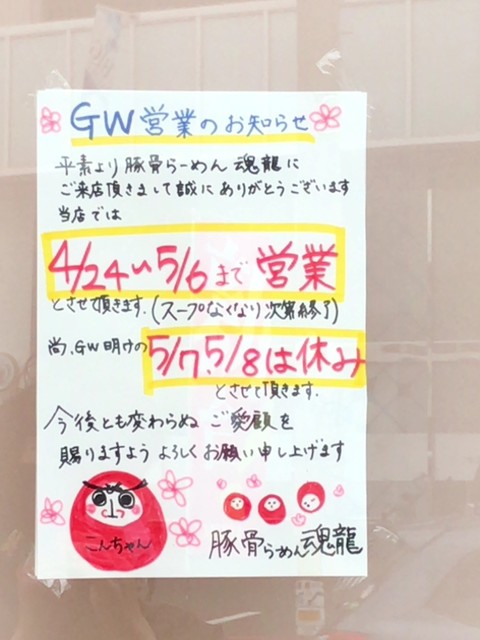 GW営業のお知らせ
平素より豚骨らーめん魂龍に
ご来店頂きまして誠にありがとうございます
当店では
4/24〜5/6まで営業
とさせて頂きます.(スープなくなり次第終了)
尚、GW明けの5/7、5/8は休み
とさせて頂きます.
今後とも変わらぬご愛顧を
賜りますようよろしくお願い申し上げます
こんちゃん
豚骨らーめん魂龍